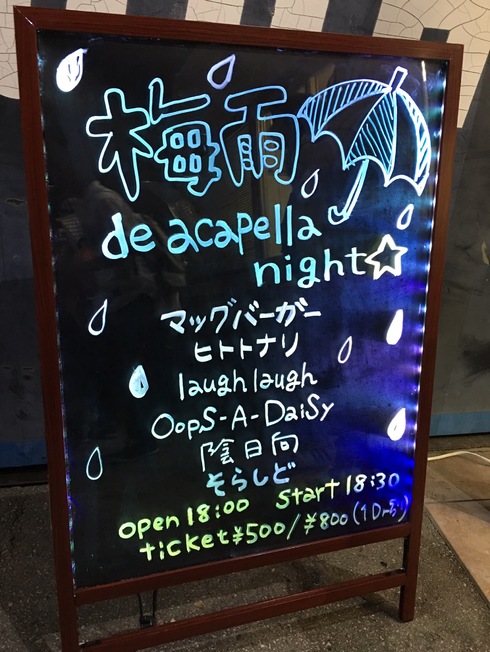 梅雨
de acapella
night☆
マッグバーガー
ヒトトナリ
laugh laugh
OopS-A-DaiSy
陰日向
そらしど
open 18:00 Start 18:30
ticket ¥500/¥800(1Dｒ)